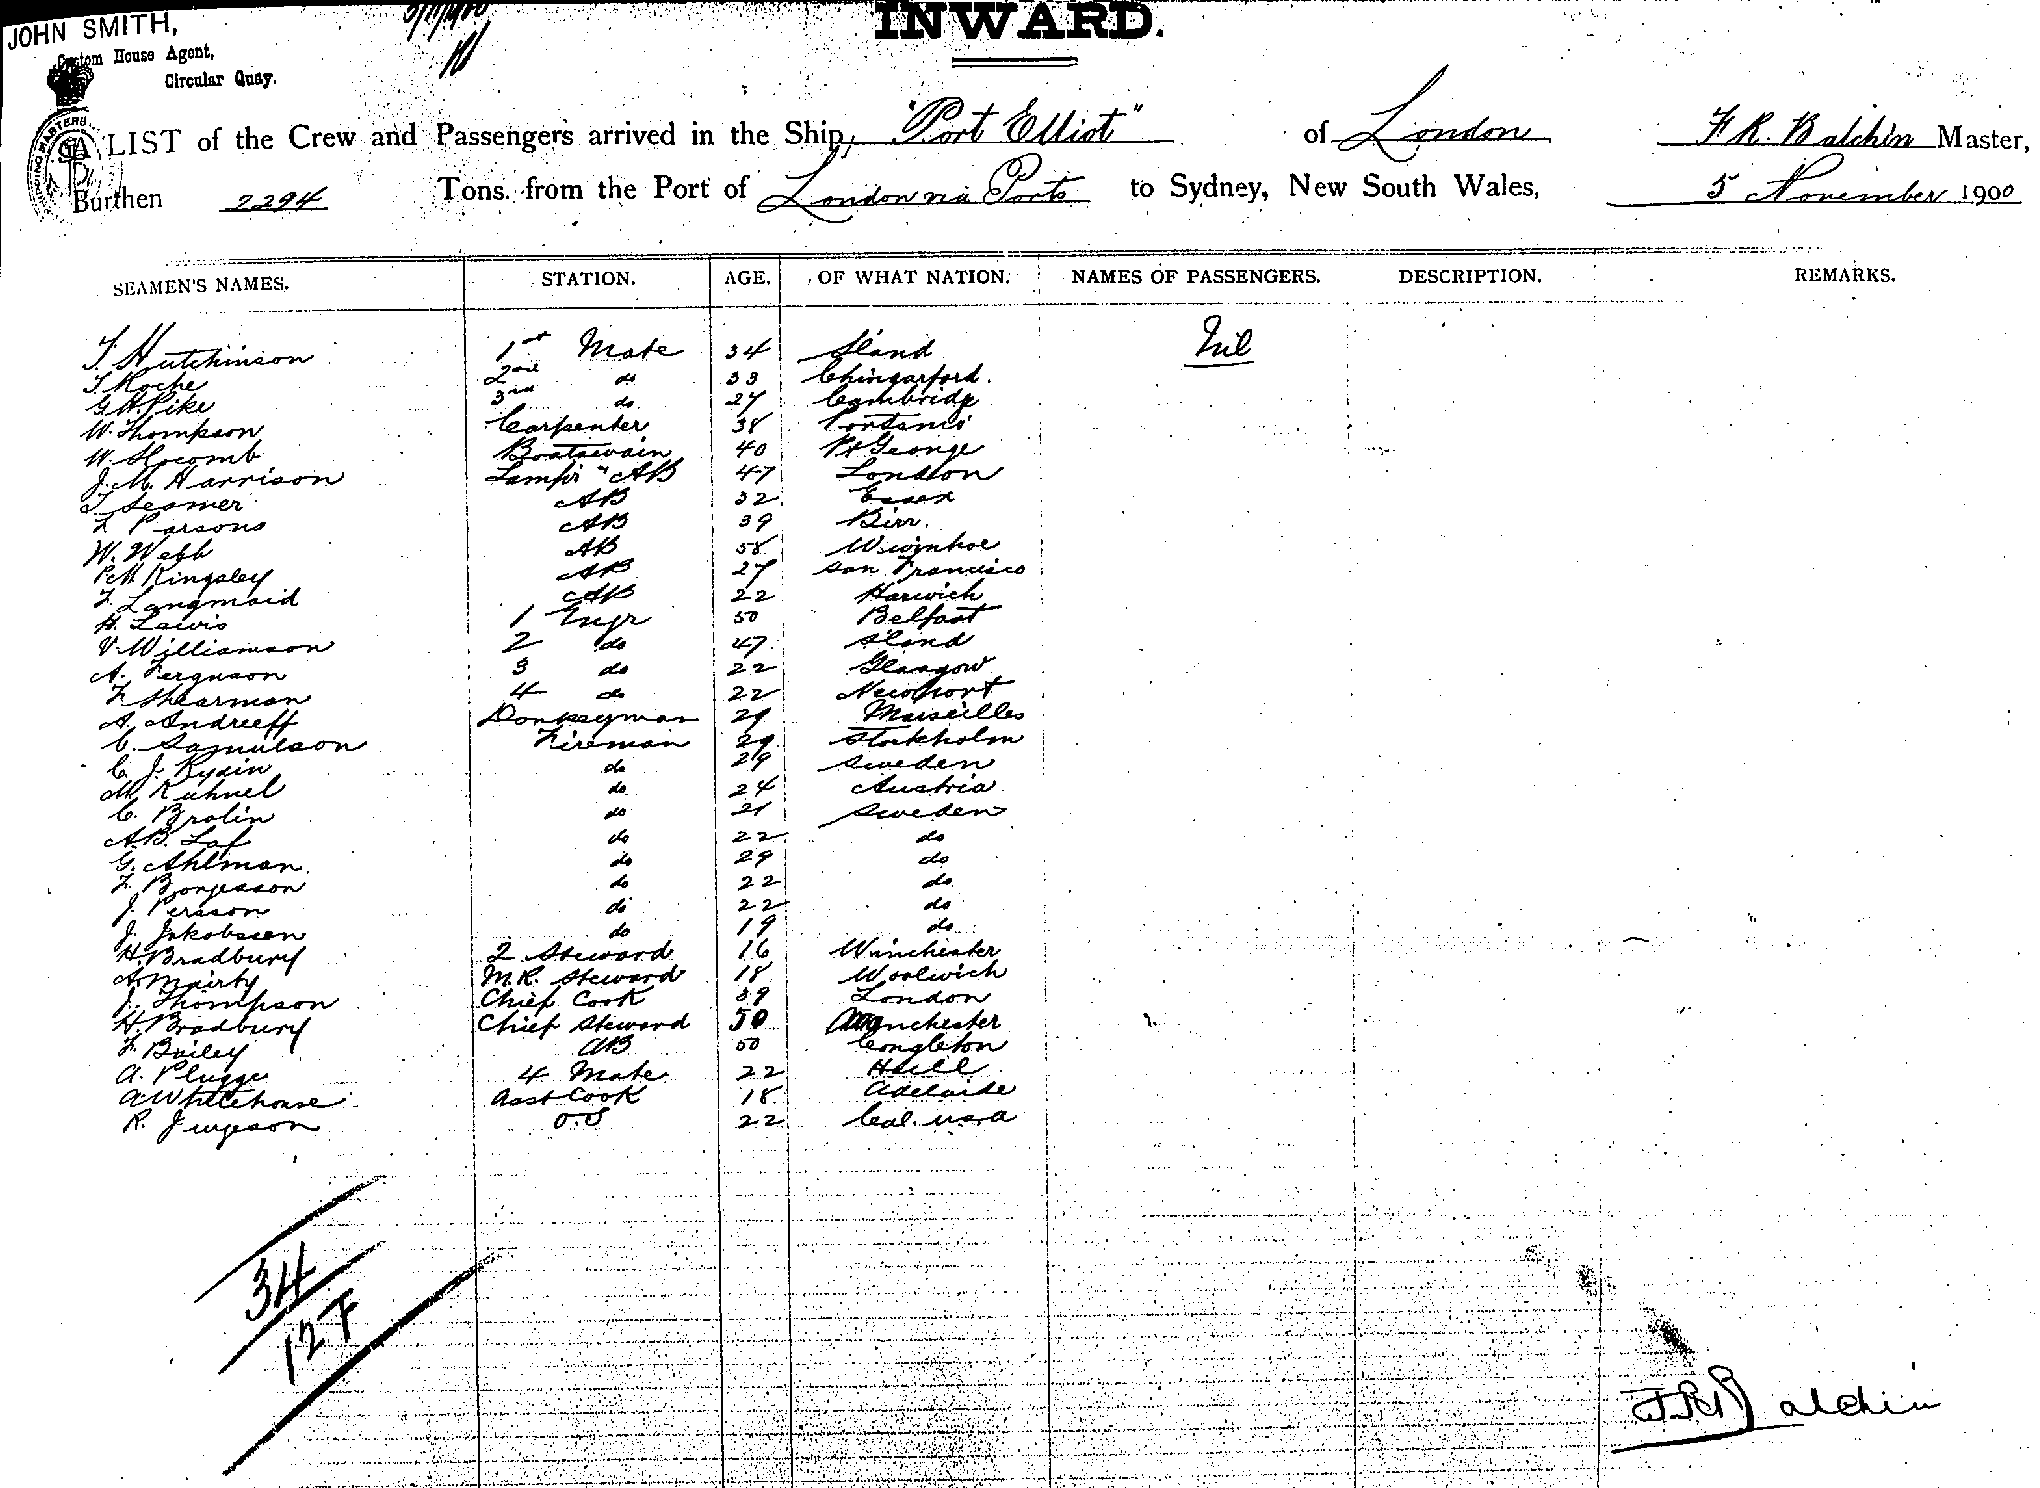 INWARD.
JOHN SMITH,
Custom House Agent,
Circular Quay.
A LIST of the Crew and Passengers arrived in the Ship, "Port Elliot" of London F. R. Balchin Master,
Burthen 2294 Tons from the Port of London via Ports to Sydney, New South Wales, 5 November 1900
SEAMEN'S NAMES. STATION. AGE. OF WHAT NATION. NAMES OF PASSENGERS. DESCRIPTION. REMARKS.
T. Hutchinson 1st Mate 34 Sland Nil
T. Roche 2nd do 33
G. H. Pike 3rd do 27 Cambridge
W. Thompson Carpenter 38
W. Slocomb Boatswain 40 Pt George
J. M. Harrison Lamps "AB 47 London
T. Seamer AB 32 Essex
L Parsons AB 39 Birr.
W. Webb AB 58 Wivinhoe
Kingsley AB 27 San Francisco
F. Langmaid AB 22 Harwich
H. Lewis 1 Engr 50 Belfast
V. Williamson 2 do 47 Sland
A. Ferguson 3 do 22 Glasgow
F. Shearman 4 do 22 Newport
A. Andreeff Donkeyman 29 Marseilles
C. Samuelson Fireman 29 Stockholm
C. J. Rydin do 29 Sweden
M. Kuhnel do 24 Austria
C. Brolin do 21 Sweden
A. B. Laf do 22 do
G. Ahlman do 29 do
F. Borjesson do 22 do
J. Persson do 22 do
J. Jakobsen do 19 do
H. Bradbury 2 Steward 16 Winchester
A. M. R. Steward 18 Woolwich
J. Thompson Chief Cook 39 London
H. Bradbury Chief Steward 50 Manchester
F. Bailey AB 50 Congleton
A. Plugge 4 Mate 22 Hull
A Whitehouse Asst Cook 18 Adelaide
R. Jurgeson O.S 22 Cal. USA
34
12 F
F. R. Balchin